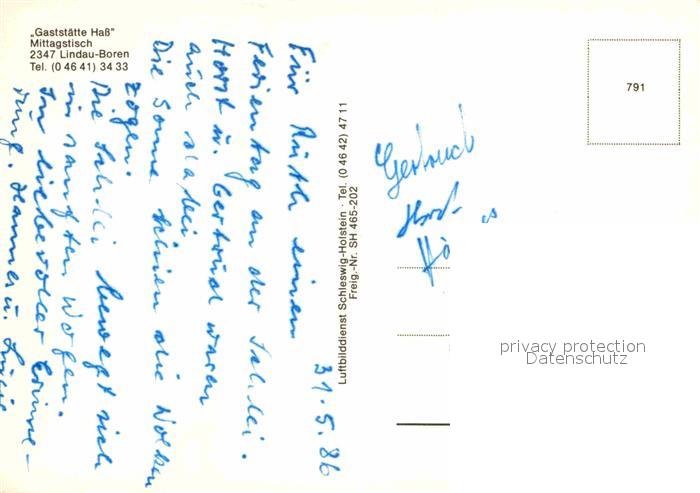 „Gaststätte Haß"
Mittagstisch
2347 Lindau-Boren
Tel. (0 46 41) 34 33
31.5.86
Für Ruth einen
Ferientag an der Schlei.
Horst u. Gertrud waren
auch dabei
Die Sonne schien die Wolken
zogen.
Die Schlei bewegt sich
in sanften Wogen.
In liebevoller Erinne-
rung. Hanne u.
Luftbilddienst Schleswig-Holstein · Tel. (0 46 42) 47 11
Freig.-Nr. SH 465-202
Gertrud
Horst
791
privacy protection
Datenschutz